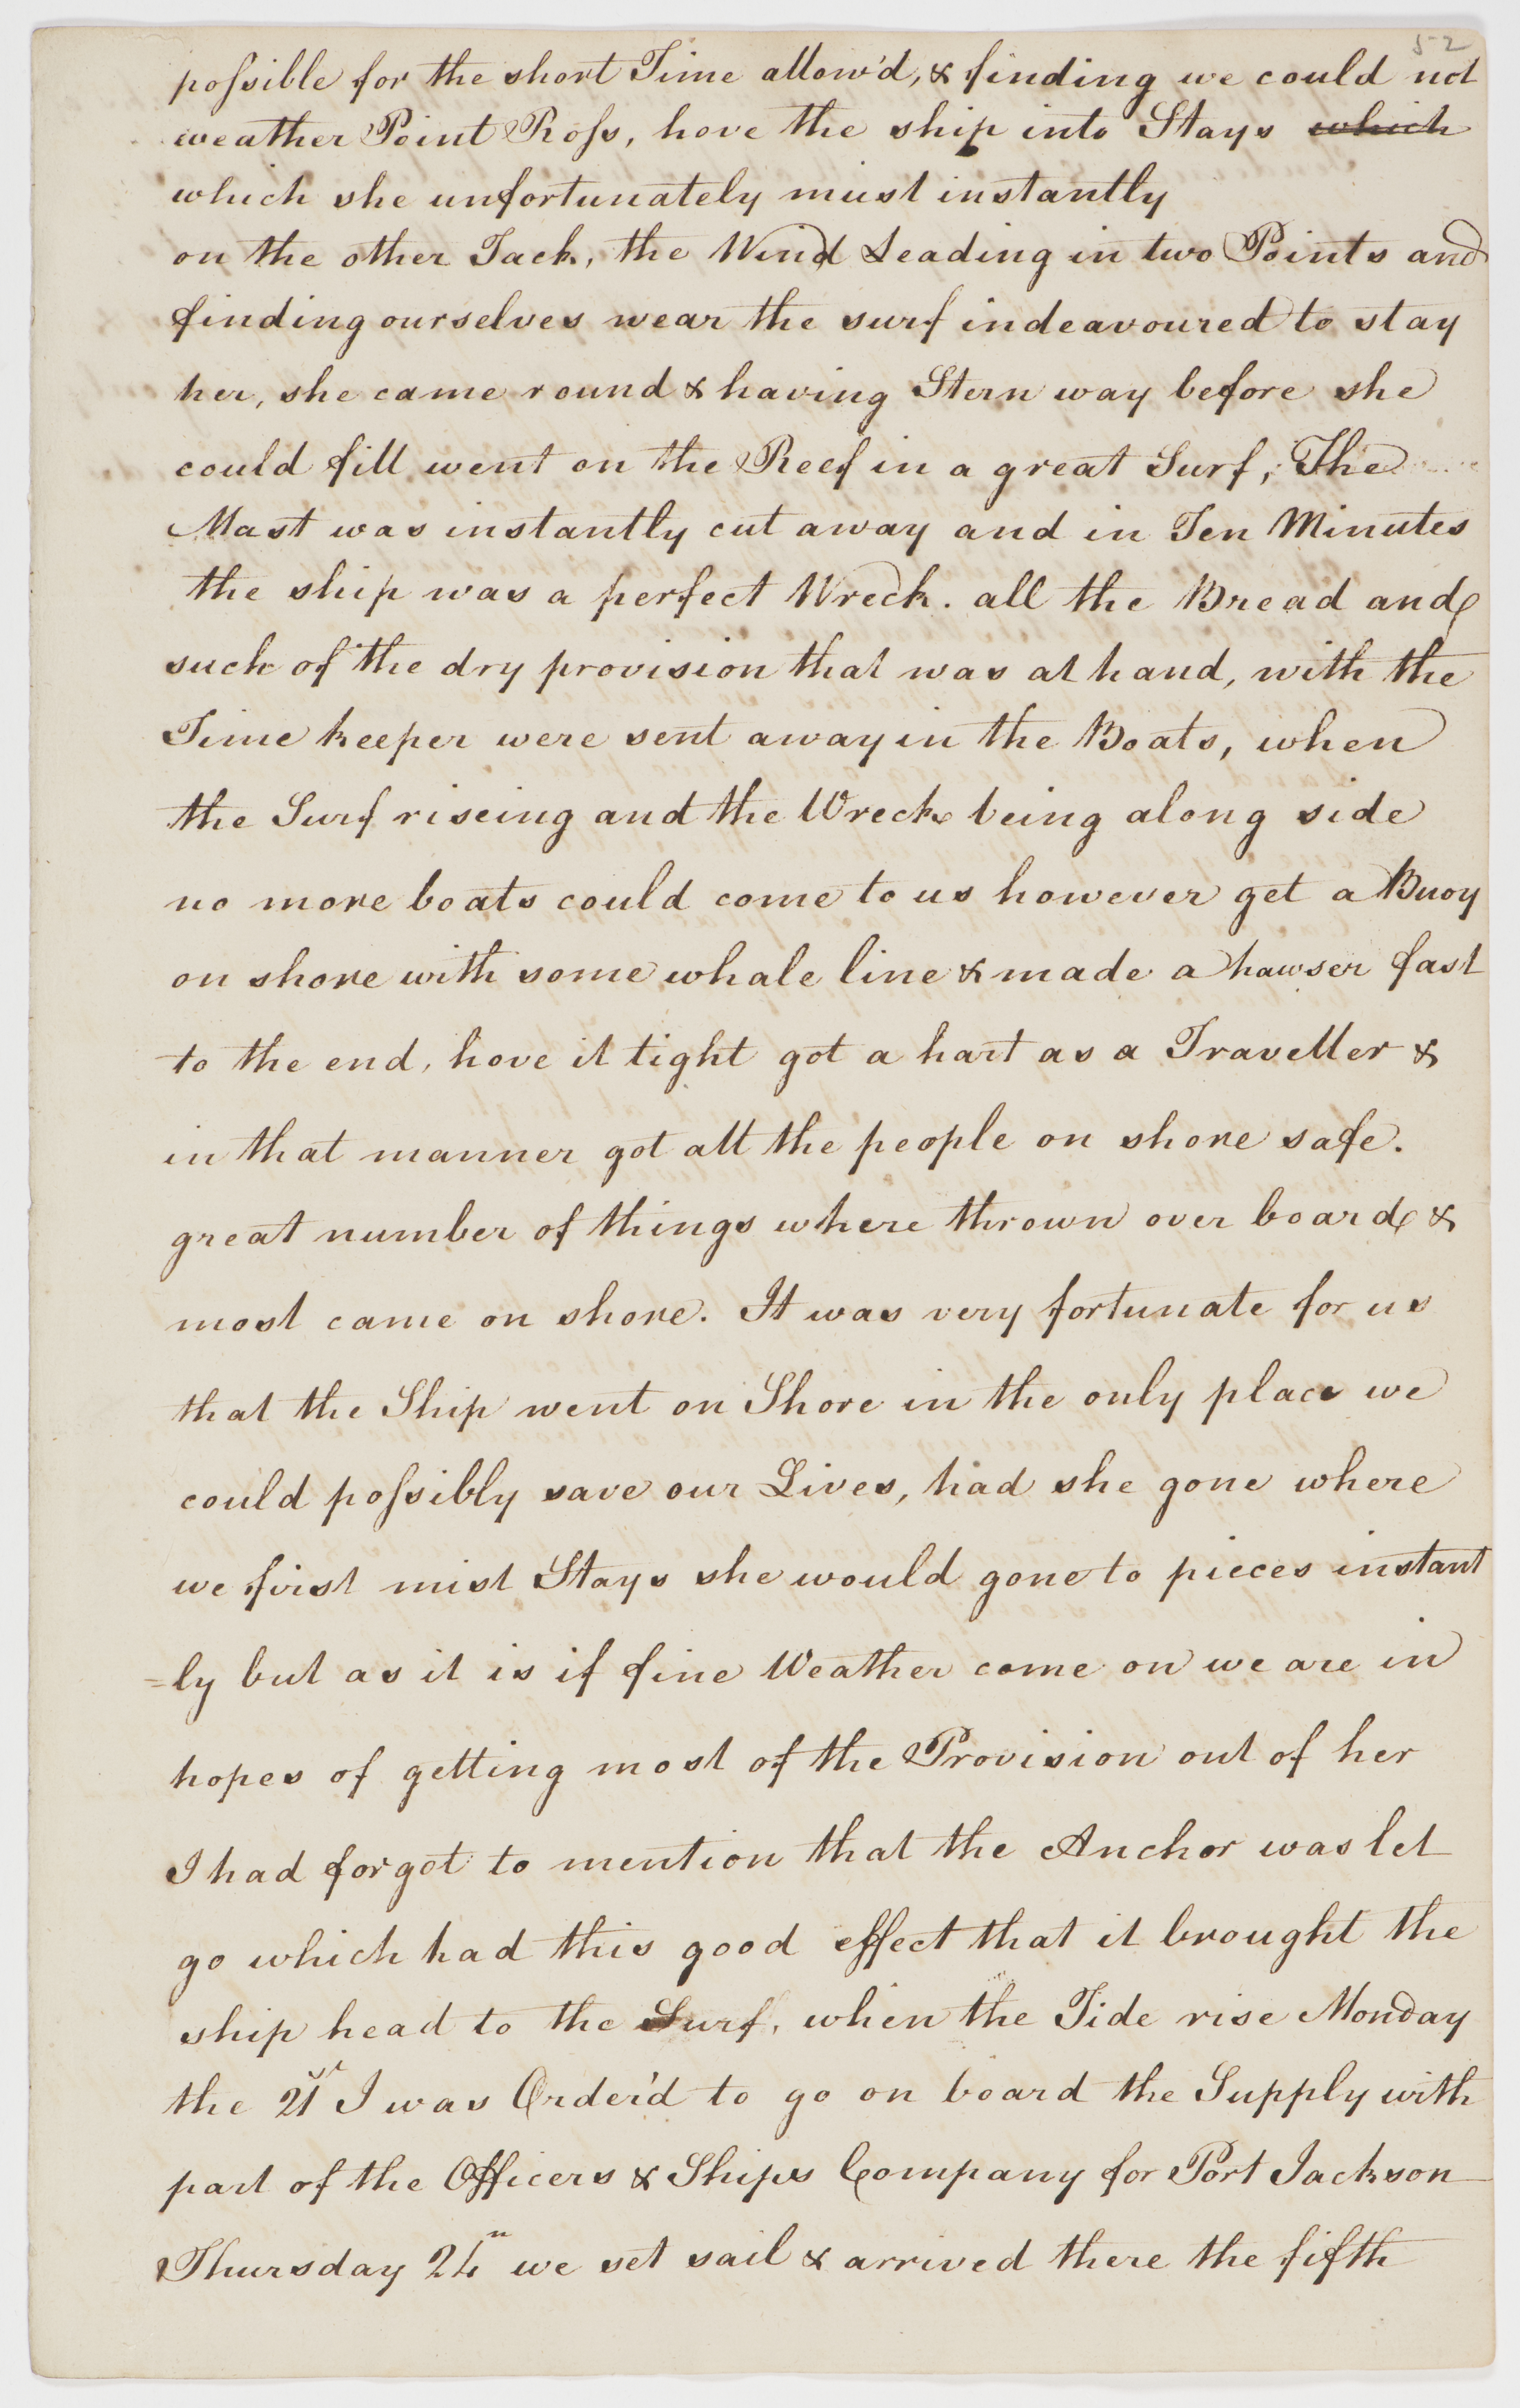 52
possible for the short Time allow'd, & finding we could not
weather Point Ross, hove the ship into Stays which
which she unfortunately mist instantly
on the other Tack, the Wind Leading in two Points and
finding ourselves near the surf indeavoured to stay
her, she came round & having Stern way before she
could fill went on the Reef in a great Surf, The
Mast was instantly cut away and in Ten Minutes
the ship was a perfect Wreck. all the Bread and
such of the dry provision that was at hand, with the
Time keeper were sent away in the Boats, when
the Surf riseing and the Wreck being along side
no more boats could come to us however get a Buoy
on shore with some whale line & made a hawser fast
to the end, hove it tight got a hart as a Traveller &
in that manner got all the people on shore safe.
great number of things where thrown over board &
most came on shore. It was very fortunate for us
that the Ship went on Shore in the only place we
could possibly save our Lives, had she gone where
we first mist Stays she would gone to pieces instant
=ly but as it is if fine Weather come on we are in
hopes of getting most of the Provision out of her
I had forgot to mention that the Anchor was let
go which had this good effect that it brought the
ship head to the Surf, when the Tide rise Monday
the 21st I was Order'd to go on board the Supply with
part of the Officers & Ships Company for Port Jackson
Thursday 24th we set sail & arrived there the fifth